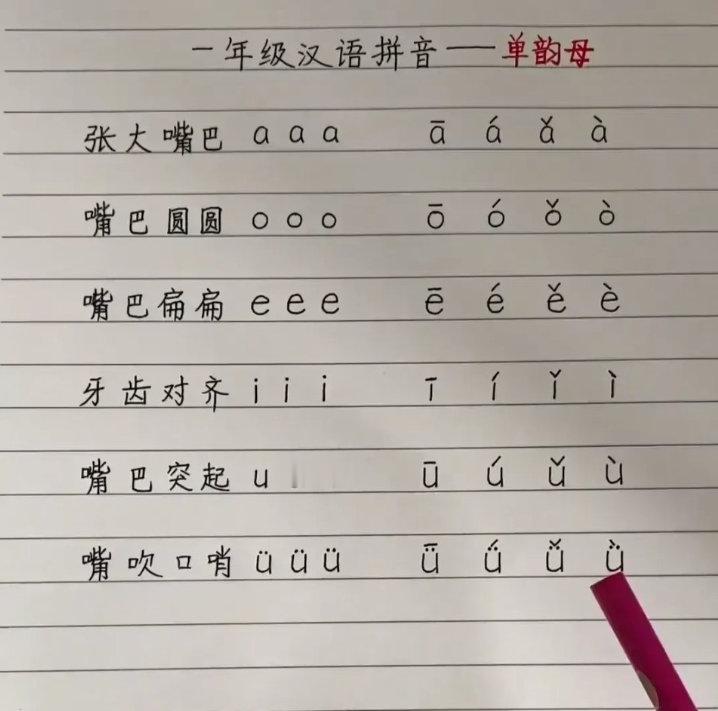 一年级汉语拼音——单韵母
张大嘴巴 a a a ā á ǎ à
嘴巴圆圆 o o o ō ó ǒ ò
嘴巴扁扁 e e e ē é ě è
牙齿对齐 i i i ī í ǐ ì
嘴巴突起 u ū ú ǔ ù
嘴吹口哨 ü ü ü ǖ ǘ ǚ ǜ